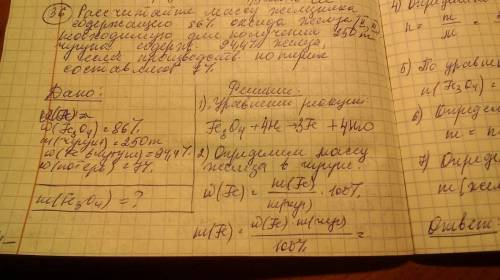 36 Рассчитайте массу железняка
содержащего 86% оксида железа (II, III)
необходимую для получения 250 т
чугуна содерж. 94,4% железа,
если производств. потери
составляют 7%
Дано:
ω(Fe3O4) = 86%
m(чугун) = 250 т
ω(Fe в чугуне) = 94,4%
ω(потерь) = 7%
m(Fe3O4) = ?
Решение:
1) Уравнение реакции
Fe3O4 + 4H 3Fe + 4H2O
2) Определим массу
железа в чугуне.
ω(Fe) = m(Fe) / m(чуг) · 100%
m(Fe) = ω(Fe) · m(чуг) / 100% =
4) Определи
n = m
5) По уравне
n(Fe3O4) =
6) Опреде
m = n
7) Определ
m(жел
Ответ